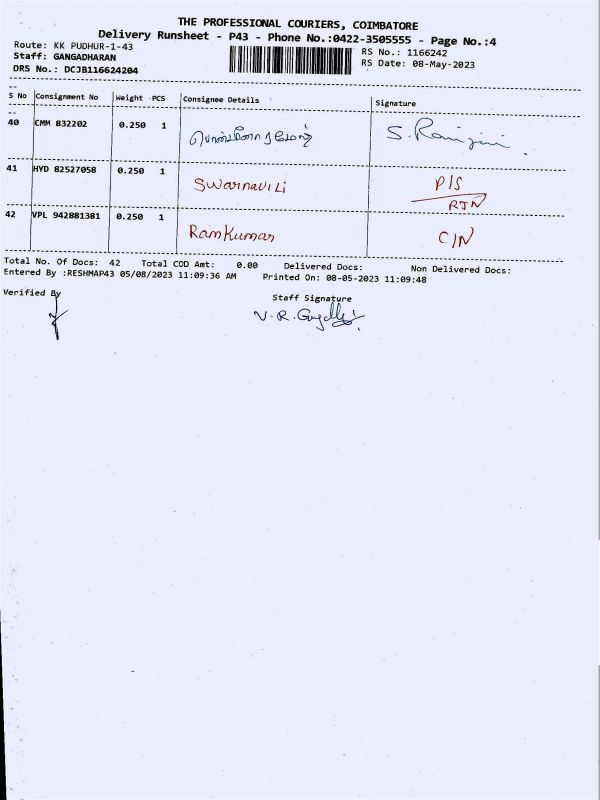 THE PROFESSIONAL COURIERS, COIMBATORE
Delivery Runsheet - P43 - Phone No.:0422-3505555 - Page No.:4
Route: KK PUDHUR-1-43
RS No.: 1166242
Staff: GANGADHARAN
RS Date: 08-May-2023
DRS No.: DCJB116624204
S No Consignment No Weight PCS Consignee Details Signature
40 CMM 832202 0.250 1 S. Ranjini
41 HYD 82527058 0.250 1 Swarnavili P/S
RTN
42 VPL 942881381 0.250 1 RamKumar C/N
Total No. Of Docs: 42 Total COD Amt: 0.00 Delivered Docs: Non Delivered Docs:
Entered By :RESHMAP43 05/08/2023 11:09:36 AM Printed On: 08-05-2023 11:09:48
Verified By
Staff Signature
V. R.